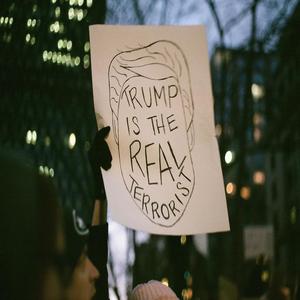 TRUMP
IS THE
REAL
TERRORIST